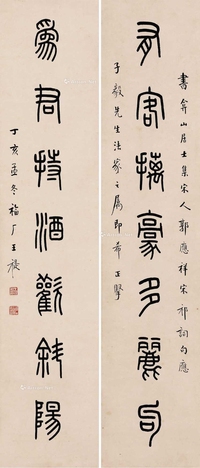 書弇山居士集宋人郭應祥宋祁詞句應
有客摛豪多麗句
子毅先生法家之屬即希正擥
為君持酒勸斜陽
丁亥孟冬福厂王禔